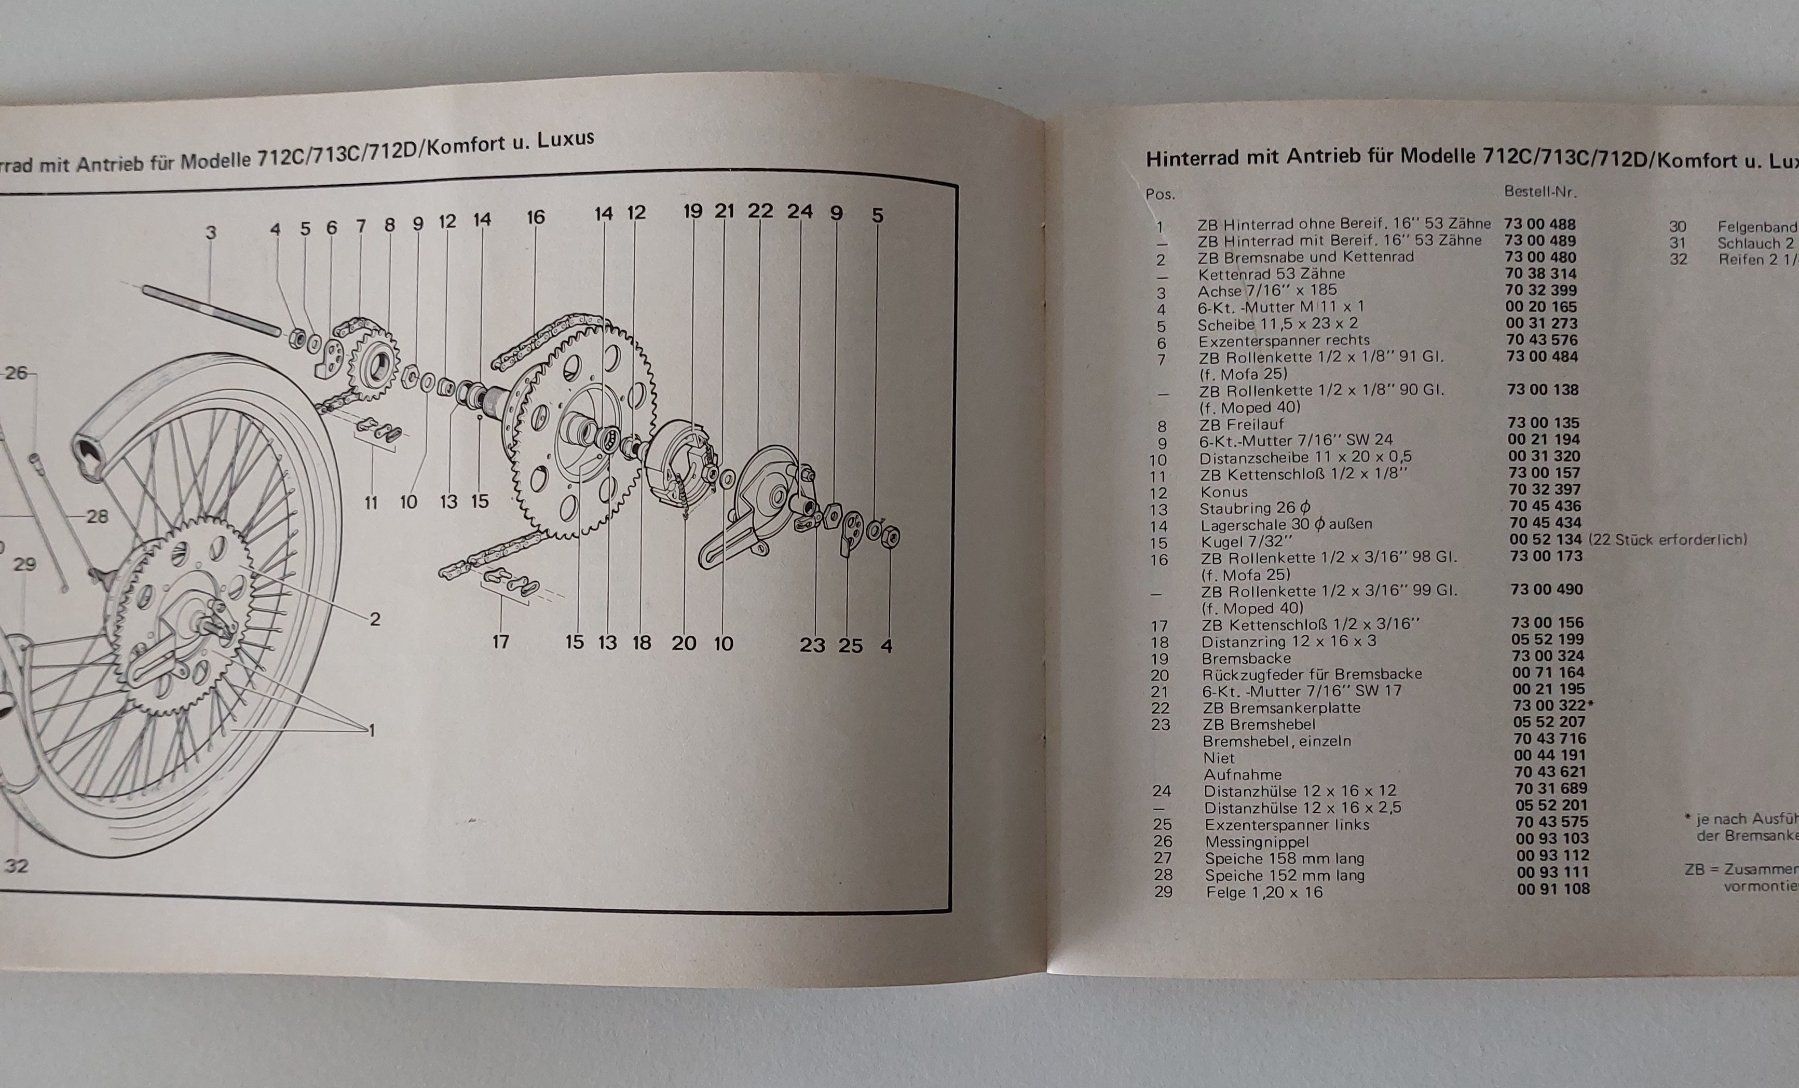 rrad mit Antrieb für Modelle 712C/713C/712D/Komfort u. Luxus
3 4 5 6 7 8 9 12 14 16 14 12 19 21 22 24 9 5
26
28
29
11 10 13 15
2
17 15 13 18 20 10 23 25 4
1
32
Hinterrad mit Antrieb für Modelle 712C/713C/712D/Komfort u. Lux
Pos. Bestell-Nr.
1 ZB Hinterrad ohne Bereif. 16'' 53 Zähne 73 00 488
– ZB Hinterrad mit Bereif. 16'' 53 Zähne 73 00 489
2 ZB Bremsnabe und Kettenrad 73 00 480
– Kettenrad 53 Zähne 70 38 314
3 Achse 7/16'' x 185 70 32 399
4 6-Kt. -Mutter M 11 x 1 00 20 165
5 Scheibe 11,5 x 23 x 2 00 31 273
6 Exzenterspanner rechts 70 43 576
7 ZB Rollenkette 1/2 x 1/8'' 91 Gl. 73 00 484
(f. Mofa 25)
– ZB Rollenkette 1/2 x 1/8'' 90 Gl. 73 00 138
(f. Moped 40)
8 ZB Freilauf 73 00 135
9 6-Kt.-Mutter 7/16'' SW 24 00 21 194
10 Distanzscheibe 11 x 20 x 0,5 00 31 320
11 ZB Kettenschloß 1/2 x 1/8'' 73 00 157
12 Konus 70 32 397
13 Staubring 26 ϕ 70 45 436
14 Lagerschale 30 ϕ außen 70 45 434
15 Kugel 7/32'' 00 52 134 (22 Stück erforderlich)
16 ZB Rollenkette 1/2 x 3/16'' 98 Gl. 73 00 173
(f. Mofa 25)
– ZB Rollenkette 1/2 x 3/16'' 99 Gl. 73 00 490
(f. Moped 40)
17 ZB Kettenschloß 1/2 x 3/16'' 73 00 156
18 Distanzring 12 x 16 x 3 05 52 199
19 Bremsbacke 73 00 324
20 Rückzugfeder für Bremsbacke 00 71 164
21 6-Kt. -Mutter 7/16'' SW 17 00 21 195
22 ZB Bremsankerplatte 73 00 322*
23 ZB Bremshebel 05 52 207
Bremshebel, einzeln 70 43 716
Niet 00 44 191
Aufnahme 70 43 621
24 Distanzhülse 12 x 16 x 12 70 31 689
– Distanzhülse 12 x 16 x 2,5 05 52 201
25 Exzenterspanner links 70 43 575
26 Messingnippel 00 93 103
27 Speiche 158 mm lang 00 93 112
28 Speiche 152 mm lang 00 93 111
29 Felge 1,20 x 16 00 91 108
30 Felgenband
31 Schlauch 2
32 Reifen 2 1/
* je nach Ausfüh
der Bremsanke
ZB = Zusammen
vormontie